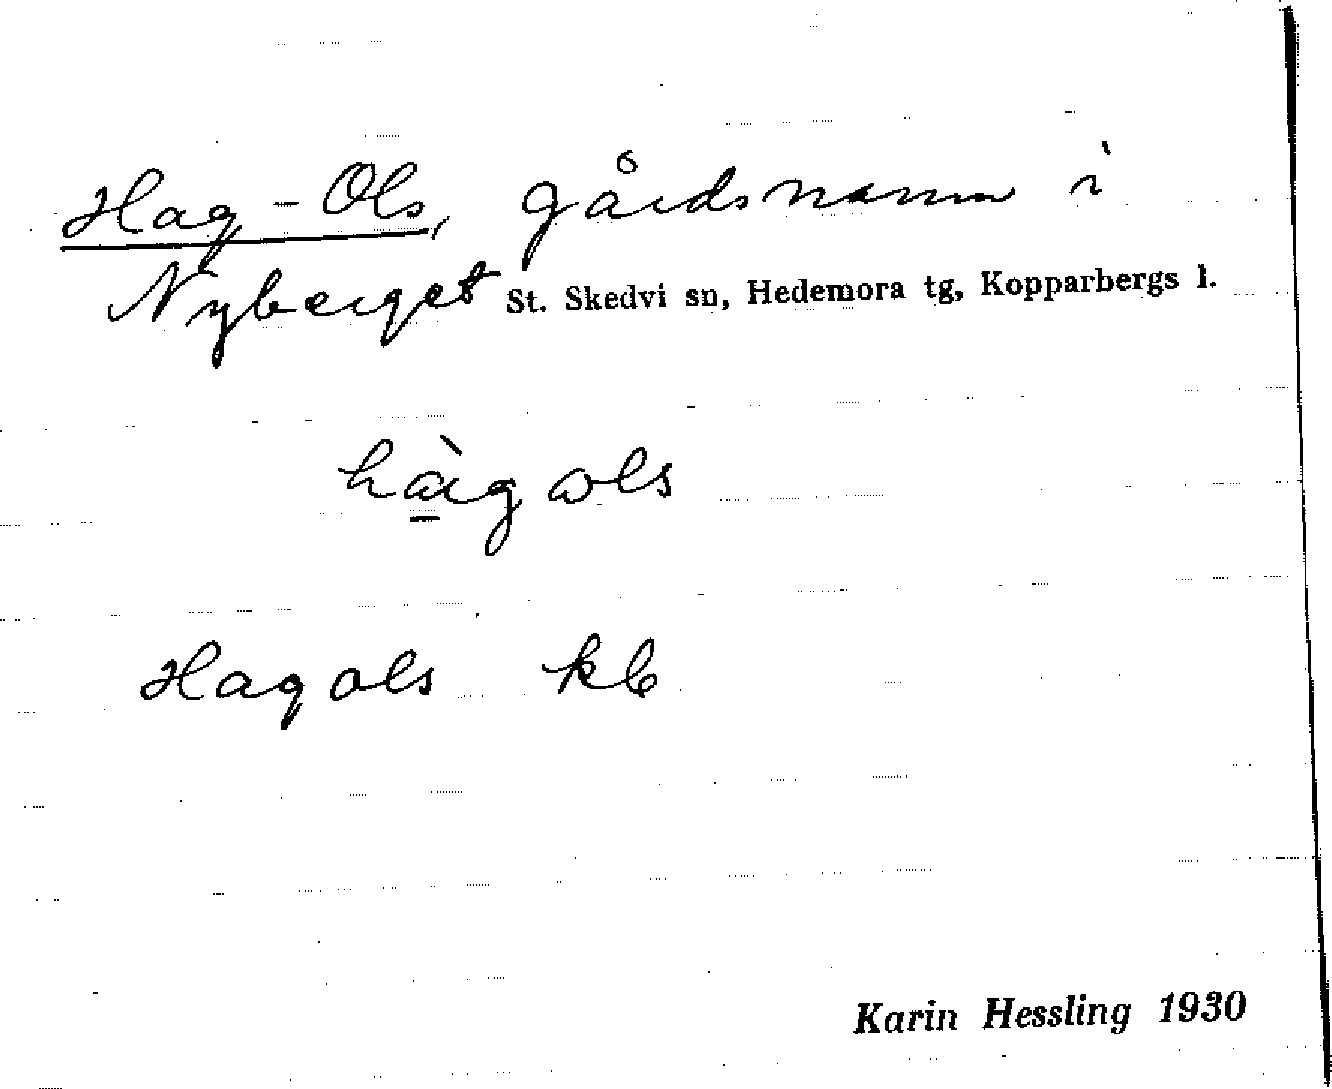 Hag-Ols, gårdsnamn i
Nyberget St. Skedvi sn, Hedemora tg, Kopparbergs l.
hà̱gɷls
Hagols kb
Karin Hessling 1930